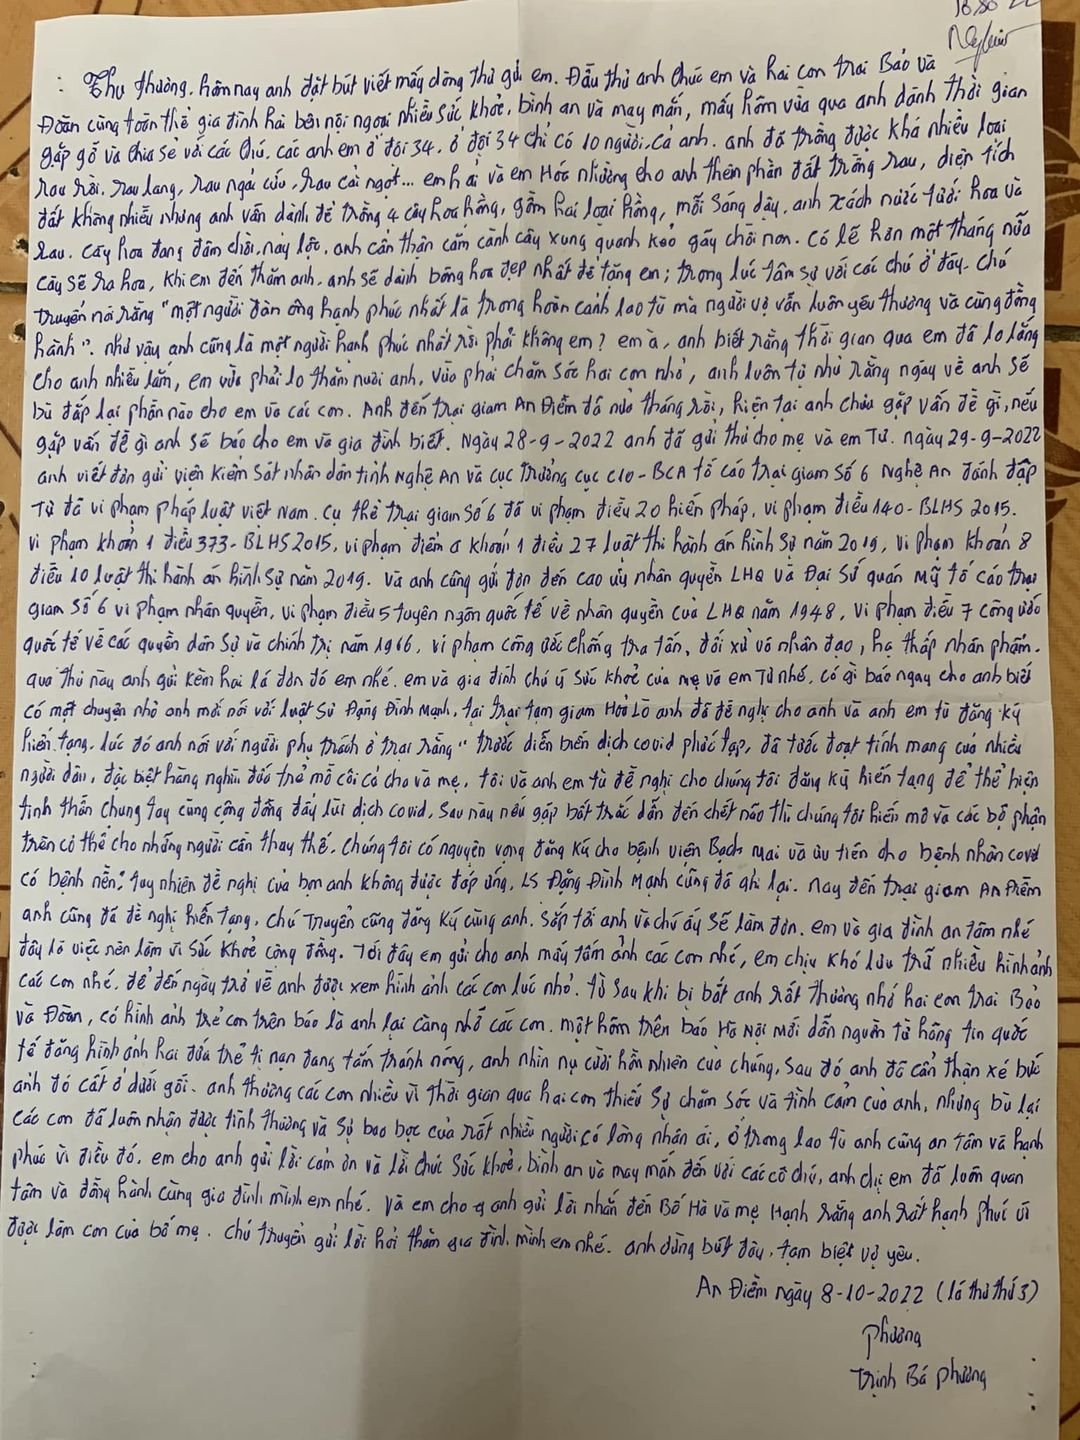 Thu thương. hôm nay anh đặt bút viết mấy dòng thư gửi em. Đầu thư anh chúc em và hai con trai Bảo và
Đoàn cùng toàn thể gia đình hai bên nội ngoại nhiều sức khoẻ, bình an và may mắn, mấy hôm vừa qua anh dành thời gian
gặp gỡ và chia sẻ với các chú, các anh em ở đội 34. ở đội 34 chỉ có 10 người cả anh. anh đã trồng được khá nhiều loại
rau rồi. rau lang, rau ngải cứu, rau cải ngọt... em hải và em Hóa nhường cho anh thêm phần đất trồng rau, diện tích
đất không nhiều nhưng anh vẫn dành để trồng 4 cây hoa hồng, gồm hai loại hồng, mỗi sáng dậy. anh xách nước tưới hoa và
rau. cây hoa đang đâm chồi nảy lộc. anh cẩn thận cắm cành cây xung quanh kẻo gãy chồi non. có lẽ hơn một tháng nữa
cây sẽ ra hoa, khi em đến thăm anh. anh sẽ dành bông hoa đẹp nhất để tặng em; trong lúc tâm sự với các chú ở đây. chú
Truyển nói rằng "một người đàn ông hạnh phúc nhất là trong hoàn cảnh lao tù mà người vợ vẫn luôn yêu thương và cùng đồng
hành". như vậy anh cũng là một người hạnh phúc nhất rồi phải không em? em à, anh biết rằng thời gian qua em đã lo lắng
cho anh nhiều lắm, em vừa phải lo thăm nuôi anh, vừa phải chăm sóc hai con nhỏ, anh luôn tự nhủ rằng ngày về anh sẽ
bù đắp lại phần nào cho em và các con. Anh đến trại giam An Điềm đã nửa tháng rồi, hiện tại anh chưa gặp vấn đề gì, nếu
gặp vấn đề gì anh sẽ báo cho em và gia đình biết. Ngày 28-9-2022 anh đã gửi thư cho mẹ và em Tư. ngày 29-9-2022
anh viết đơn gửi viện Kiểm Sát nhân dân tỉnh Nghệ An và cục trưởng cục C10-BCA tố cáo trại giam Số 6 Nghệ An đánh đập
Tư đã vi phạm pháp luật việt Nam. cụ thể trại giam Số 6 đã vi phạm điều 20 hiến pháp, vi phạm điều 140-BLHS 2015.
vi phạm khoản 1 điều 373-BLHS 2015, vi phạm điểm a khoản 1 điều 27 luật thi hành án hình sự năm 2019, vi phạm khoản 8
điều 10 luật thi hành án hình sự năm 2019. Và anh cũng gửi đơn đến cao uỷ nhân quyền LHQ và Đại Sứ quán Mỹ tố cáo trại
giam Số 6 vi phạm nhân quyền, vi phạm điều 5 tuyên ngôn quốc tế về nhân quyền của LHQ năm 1948, vi phạm điều 7 công ước
quốc tế về các quyền dân sự và chính trị năm 1966, vi phạm công ước chống tra tấn, đối xử vô nhân đạo, hạ thấp nhân phẩm.
qua thư này anh gửi kèm hai lá đơn đó em nhé. em và gia đình chú ý sức khoẻ của mẹ và em Tư nhé, có gì báo ngay cho anh biết
có một chuyện nhỏ anh mới nói với luật Sư Đặng Đình Mạnh, tại trại tạm giam Hoả Lò anh đã đề nghị cho anh và anh em tù đăng ký
hiến tạng. lúc đó anh nói với người phụ trách ở trại rằng "trước diễn biến dịch covid phức tạp, đã tước đoạt tính mạng của nhiều
người dân, đặc biệt hàng nghìn đứa trẻ mồ côi cả cha và mẹ, tôi và anh em tù đề nghị cho chúng tôi đăng ký hiến tạng để thể hiện
tinh thần chung tay cùng cộng đồng đẩy lùi dịch covid, sau này nếu gặp bất trắc dẫn đến chết não thì chúng tôi hiến mô và các bộ phận
trên cơ thể cho những người cần thay thế, chúng tôi có nguyện vọng đăng ký cho bệnh viện Bạch Mai và ưu tiên cho bệnh nhân covid
có bệnh nền". tuy nhiên đề nghị của bọn anh không được đáp ứng. LS Đặng Đình Mạnh cũng đã ghi lại. nay đến trại giam An Điềm
anh cũng đã đề nghị hiến tạng, chú Truyển cũng đăng ký cùng anh. sắp tới anh và chú ấy sẽ làm đơn. em và gia đình an tâm nhé
đây là việc nên làm vì sức khoẻ cộng đồng. Tới đây em gửi cho anh mấy tấm ảnh các con nhé, em chịu khó lưu trữ nhiều hình ảnh
các con nhé, để đến ngày trở về anh được xem hình ảnh các con lúc nhỏ. từ sau khi bị bắt anh rất thương nhớ hai con trai Bảo
và Đoàn, có hình ảnh trẻ con trên báo là anh lại càng nhớ các con. một hôm trên báo Hà Nội mới dẫn nguồn từ hãng tin quốc
tế đăng hình ảnh hai đứa trẻ tị nạn đang tắm tránh nóng, anh nhìn nụ cười hồn nhiên của chúng, sau đó anh đã cẩn thận xé bức
ảnh đó cất ở dưới gối. anh thương các con nhiều vì thời gian qua hai con thiếu sự chăm sóc và tình cảm của anh, nhưng bù lại
các con đã luôn nhận được tình thương và sự bao bọc của rất nhiều người có lòng nhân ái, ở trong lao tù anh cũng an tâm và hạnh
phúc vì điều đó. em cho anh gửi lời cảm ơn và lời chúc sức khoẻ, bình an và may mắn đến với các cô chú, anh chị em đã luôn quan
tâm và đồng hành cùng gia đình mình em nhé. Và em cho anh gửi lời nhắn đến Bố Hà và mẹ Hạnh rằng anh rất hạnh phúc vì
được làm con của bố mẹ. chú Truyển gửi lời hỏi thăm gia đình mình em nhé. anh dừng bút đây, tạm biệt vợ yêu.
An Điềm ngày 8-10-2022 (lá thư thứ 3)
Phương
Trịnh Bá Phương